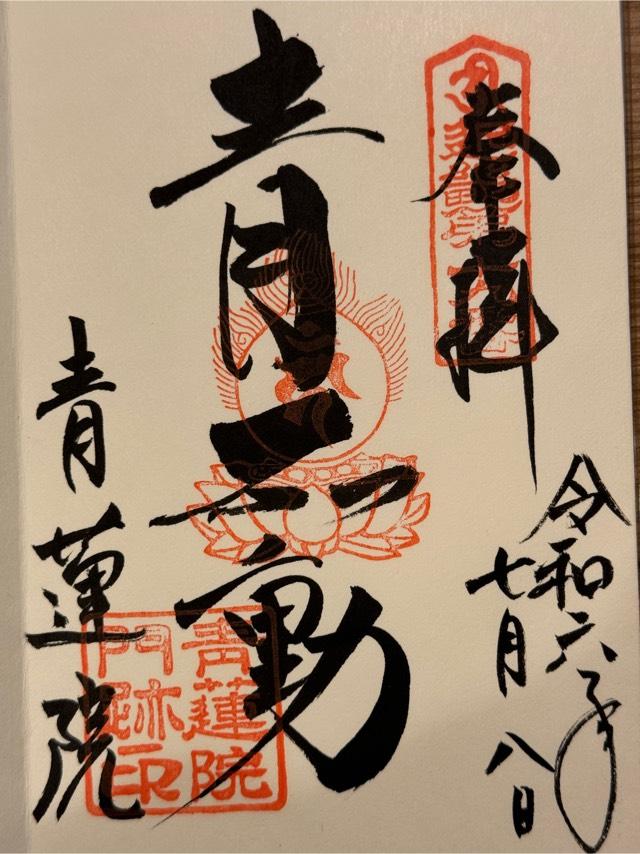 奉拝
令和六年
七月八日
青不動
青蓮院
青蓮院
門跡印